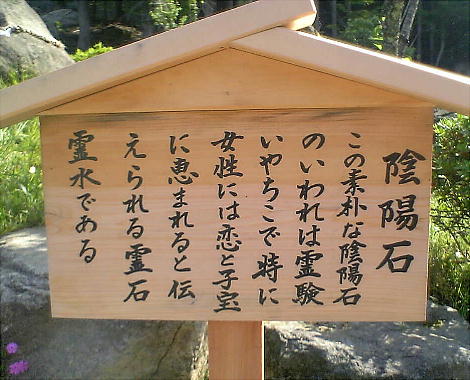 陰陽石
この素朴な陰陽石
のいわれは霊験
いやちこで特に
女性には恋と子宝
に恵まれると伝
えられる霊石
霊水である